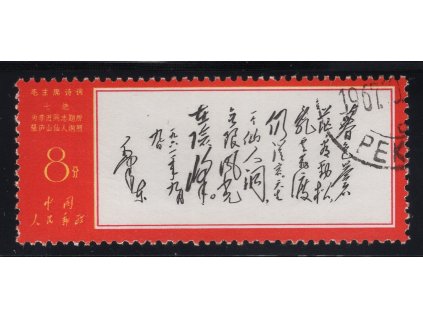 毛主席诗词
七绝
为李进同志题所
摄庐山仙人洞照
8分
中国
人民邮政
暮色苍
茫看劲松
乱云飞渡
仍从容天生
一个仙人洞
无限风光
在险峰。
一九六一年九月
九日
毛泽东
1967.
PEK